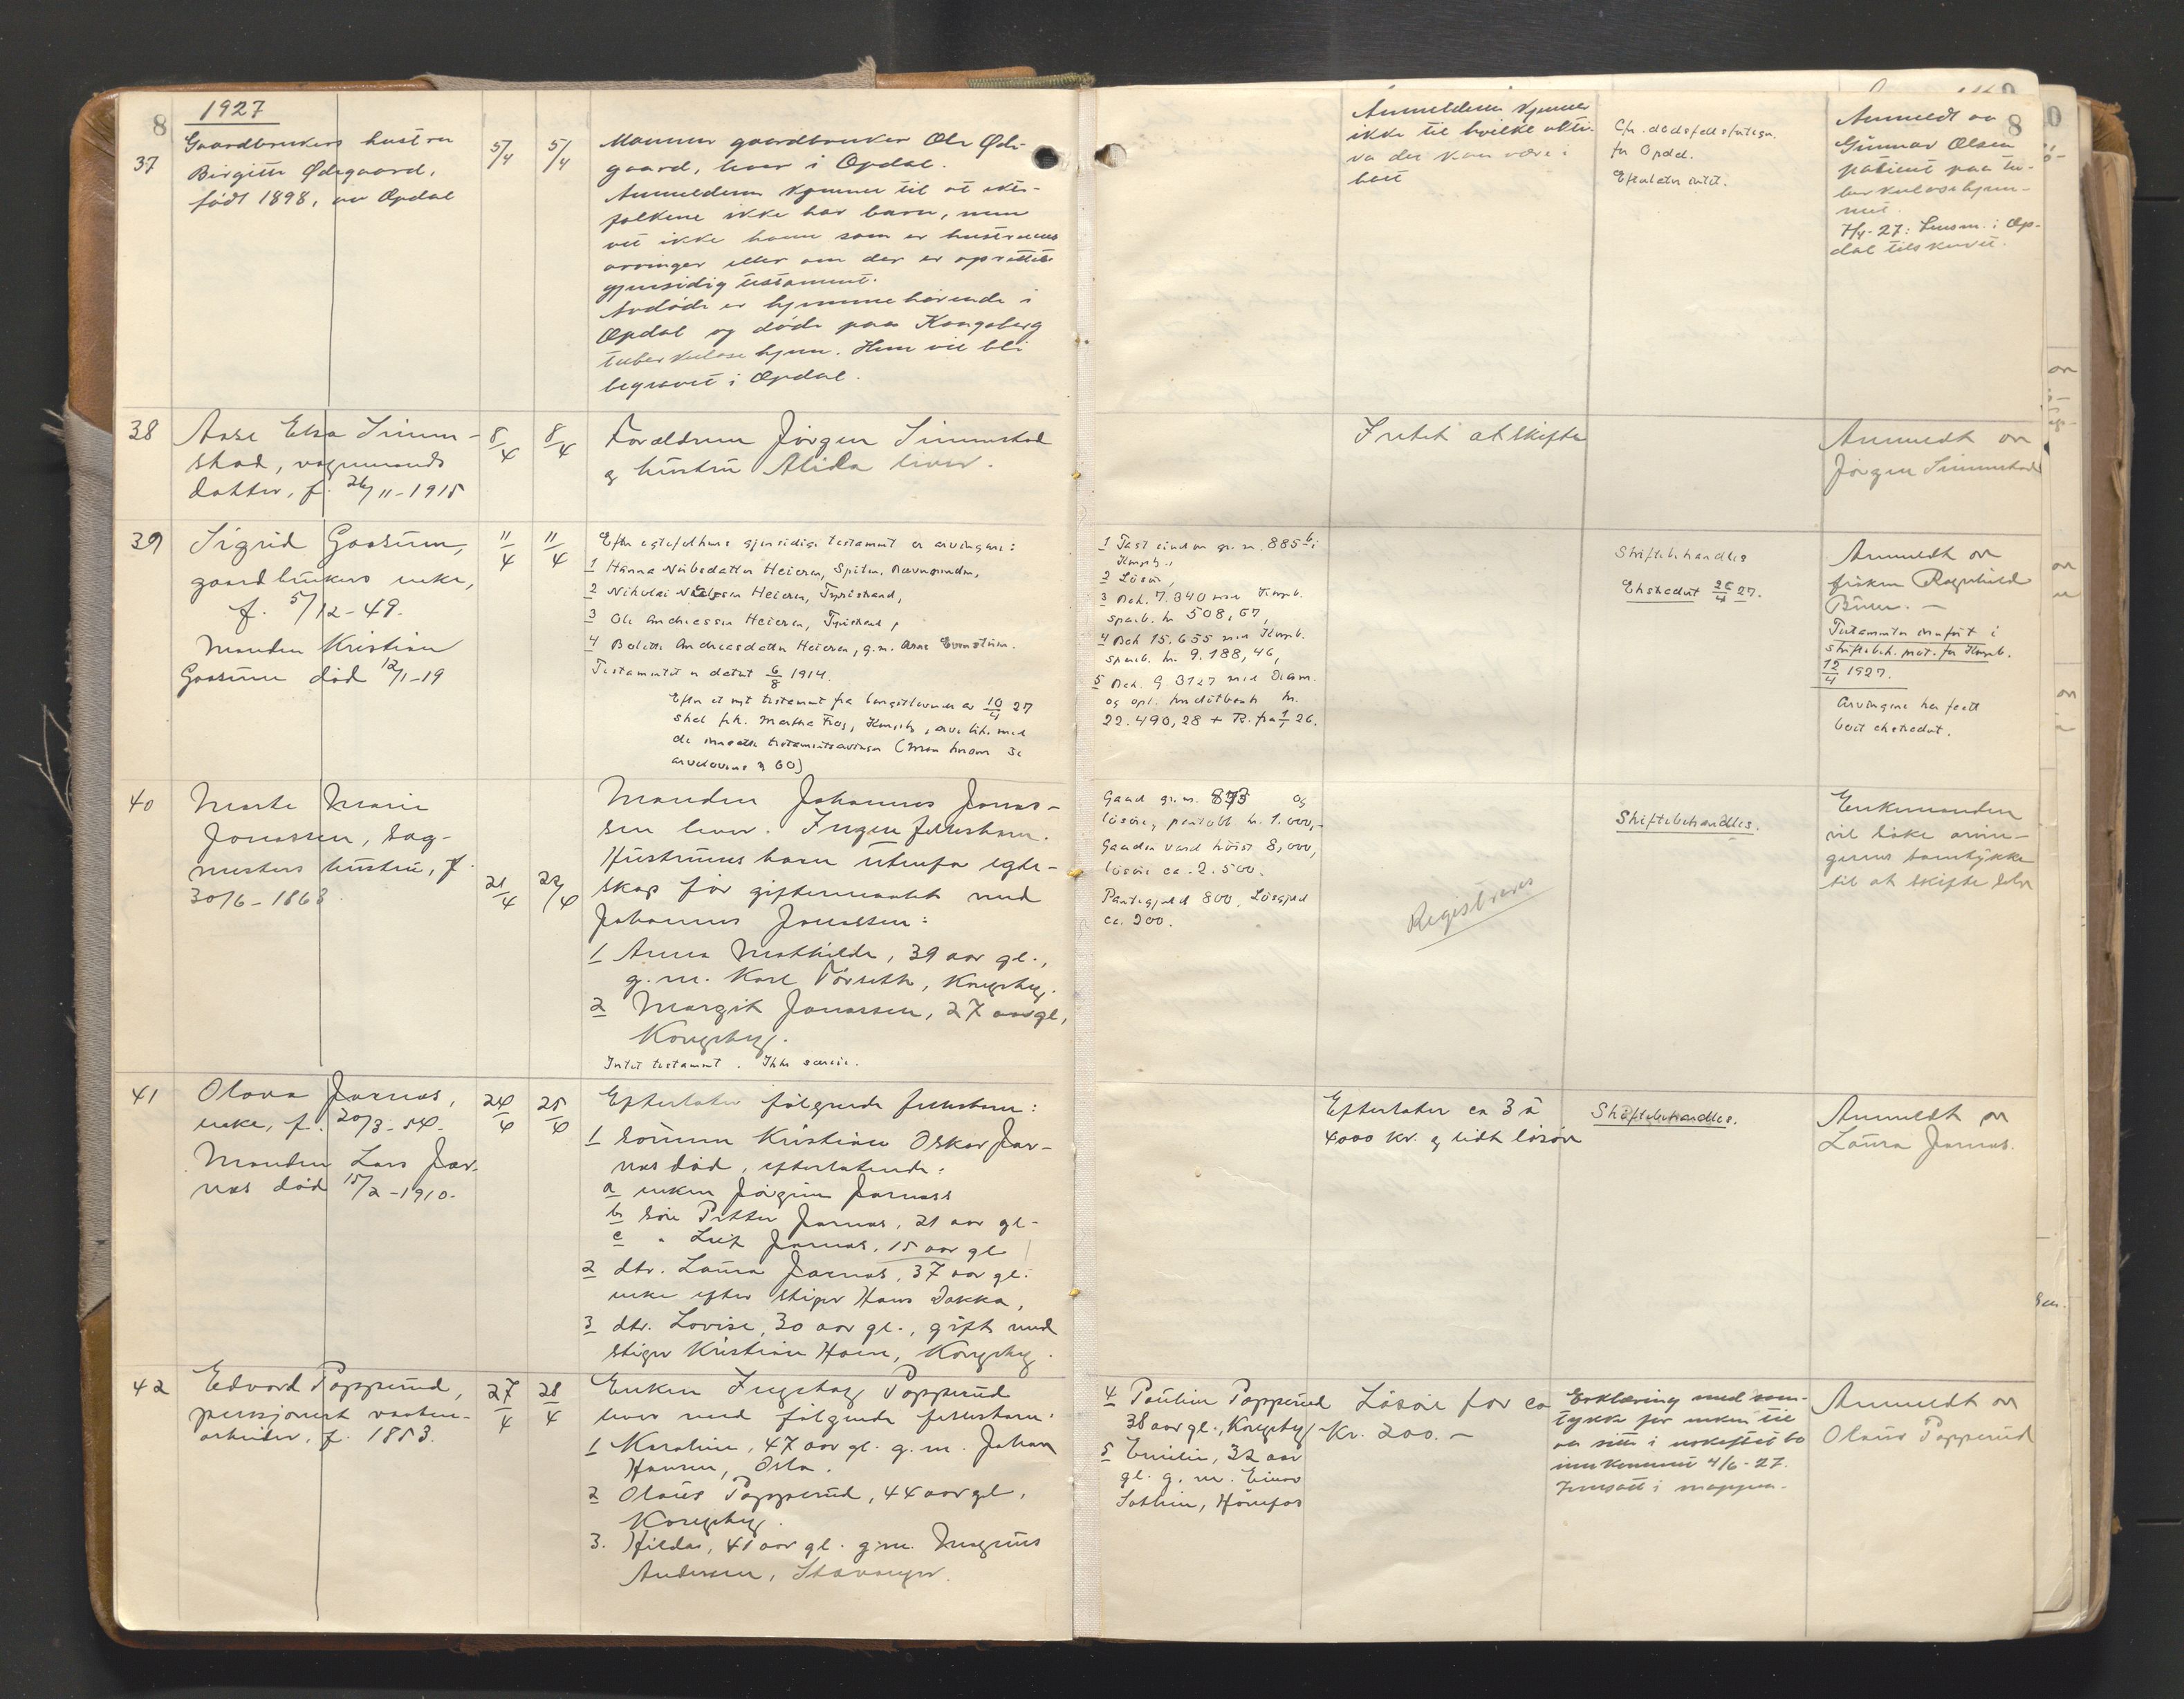 8
1927
37
Gaardbrukers hustru
Birgitte Ødegaard,
født 1898, av Opdal
5/4
5/4
Mannen gaardbruker Ole Øde-
gaard, lever i Opdal.
Anmelderen kjenner til at ekte-
folkene ikke har barn, men
vet ikke hvem som er hustruens
arvinger eller om der er oprettet
gjensidig testament.
Avdøde er hjemmehörende i
Opdal og döde paa Kongsberg
tuberkulosehjem. Hun vil bli
begravet i Opdal.
Anmelderen kjenner
ikke til hvilke akti-
va der kan være i
boet
Cfr. dødsfallsprotok.
for Opdal.
Efterlater intet.
8
Anmeldt av
Gunnar Olsen
patient paa tu-
berkulosehjem-
met.
7/4-27: Lensm. i Op-
dal tilskrevet.
38
Aase Elsa Simen-
stad, vognmands
datter, f. 26/11-1915
8/4
8/4
Forældrene Jörgen Simenstad
og hustru Alida lever.
Intet at skifte
Anmeldt av
Jörgen Simenstad
39
Sigrid Gaasum,
gaardbrukers enke,
f. 5/12-49.
Manden Kristian
Gaasum död 12/1-19
11/4
11/4
Efter egtefolkenes gjensidige testament er arvingene:
1 Hanna Nilsdatter Heieren,
2 Nikolai Nilsen Heieren, Tyristrand,
3 Ole Andreassen Heieren, Tyristrand,
4 Bolette Andreasdatter Heieren, g.m. Arne
Testamentet er datert 6/8 1914.
Efter et nyt testament fra lengstlevende av 10/4 27
skal frk. Martha Kongsb., arve likt med
de innsatte testamentsarvinger
arvelovens § 60)
1 Fast eiendom gr. n. 885 b i
Kongsb.,
2 Lösöre,
3 Bok. 7.340 med Kongsb.
spareb. kr. 508,67,
4 Bok 15.655 med Kongsb.
spareb. kr. 9.188,46,
5 Bok. G. 3127 med Dram.
og opl. kreditbank kr.
22.490,28 + R. fra 1/1 26.
Skiftebehandles
Ekstradert 26/4 27.
Anmeldt av
fröken Ragnhild
Testamentet innført i
skiftebeh. prot. for Kongsb.
12/4 1927.
Arvingene har faatt
boet ekstradert.
40
Marte Marie
Jonassen, sag-
mesters hustru, f.
30/6-1863.
21/4
22/4
Manden Johannes Jonas-
sen lever. Ingen fellesbarn.
Hustruens barn utenfor egte-
skap för giftermaalet med
Johannes Jonassen:
1 Anna Mathilde, 39 aar gl.,
g.m. Karl Kongsbg.
2 Margit Jonassen, 27 aar gl,
Kongsbg.
Intet testament. Ikke særeie.
Gaard gr. n. 873 og
lösöre, pantobl. kr. 1.000,-
Gaarden verd höist 8,000,
lösöre ca. 2.500.
Pantegjeld 800, Lösgjeld
ca. 200.
Registreres
Skiftebehandles.
Enkemanden
vil söke arvin-
gernes samtykke
til at skifte selv
41
Olava Jarnæs,
enke, f. 20/3-54.
Manden Lars Jar-
næs död 15/2-1910.
24/4
25/4
Efterlater fölgende fellesbarn:
1 sönnen Kristian Oskar Jar-
næs död, efterlatende:
a enken Jörgine Jarnæs
b sön Petter Jarnæs, 21 aar gl-
c " Leif Jarnæs, 15 aar gl
2 dtr. Laura Jarnæs, 37 aar gl.
enke efter stiger Hans Dokka,
3 dtr. Lovise, 30 aar gl., gift med
stiger Kristian Kongsbg.
Efterlater ca 3 à
4000 kr. og lidt lösöre
Skiftebehandles.
Anmeldt av
Laura Jarnæs.
42
Edvard Popperud,
pensjonert vaaben-
arbeider, f. 1853.
27/4
28/4
Enken Ingeborg Popperud
lever med fölgende fellesbarn:
1 Karoline, 47 aar gl. g.m. Johan
Hansen, Oslo.
2 Olaus Popperud, 44 aar gl,
Kongsbg.
3. Hilda, 41 aar gl. g.m. Magnus
Andersen, Stavanger.
4 Pauline Popperud
38 aar gl., Kongsbg
5 Emilie, 32 aar
gl. g. m. Einar
Hönefos
Lösöre for ca
kr. 200.-
Erklæring med sam-
tykke for enken til
aa sitte i uskiftet bo
innkommet 4/6-27.
Innsatt i mappen.
Anmeldt av
Olaus Popperud